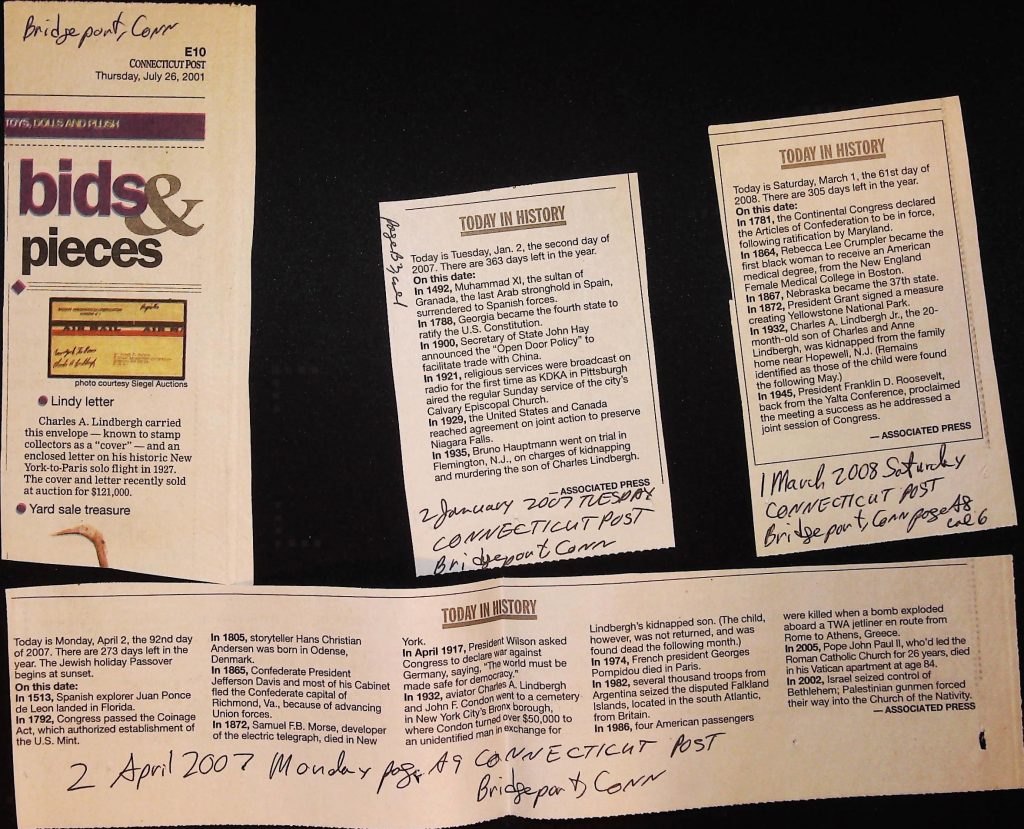 Bridgeport, Conn
E10
CONNECTICUT POST
Thursday, July 26, 2001
TOYS, DOLLS AND PLUSH
bids &
pieces
AIR MAIL
photo courtesy Siegel Auctions
Lindy letter
Charles A. Lindbergh carried
this envelope — known to stamp
collectors as a “cover” — and an
enclosed letter on his historic New
York-to-Paris solo flight in 1927.
The cover and letter recently sold
at auction for $121,000.
Yard sale treasure
TODAY IN HISTORY
Today is Tuesday, Jan. 2, the second day of
2007. There are 363 days left in the year.
On this date:
In 1492, Muhammad XI, the sultan of
Granada, the last Arab stronghold in Spain,
surrendered to Spanish forces.
In 1788, Georgia became the fourth state to
ratify the U.S. Constitution.
In 1900, Secretary of State John Hay
announced the “Open Door Policy” to
facilitate trade with China.
In 1921, religious services were broadcast on
radio for the first time as KDKA in Pittsburgh
aired the regular Sunday service of the city's
Calvary Episcopal Church.
In 1929, the United States and Canada
reached agreement on joint action to preserve
Niagara Falls.
In 1935, Bruno Hauptmann went on trial in
Flemington, N.J., on charges of kidnapping
and murdering the son of Charles Lindbergh.
— ASSOCIATED PRESS
2 January 2007 TUESDAY
CONNECTICUT POST
Bridgeport, Conn
TODAY IN HISTORY
Today is Saturday, March 1, the 61st day of
2008. There are 305 days left in the year.
On this date:
In 1781, the Continental Congress declared
the Articles of Confederation to be in force,
following ratification by Maryland.
In 1864, Rebecca Lee Crumpler became the
first black woman to receive an American
medical degree, from the New England
Female Medical College in Boston.
In 1867, Nebraska became the 37th state.
In 1872, President Grant signed a measure
creating Yellowstone National Park.
In 1932, Charles A. Lindbergh Jr., the 20-
month-old son of Charles and Anne
Lindbergh, was kidnapped from the family
home near Hopewell, N.J. (Remains
identified as those of the child were found
the following May.)
In 1945, President Franklin D. Roosevelt,
back from the Yalta Conference, proclaimed
the meeting a success as he addressed a
joint session of Congress.
— ASSOCIATED PRESS
1 March 2008 Saturday
CONNECTICUT POST
Bridgeport, Conn page A8
col 6
TODAY IN HISTORY
Today is Monday, April 2, the 92nd day
of 2007. There are 273 days left in the
year. The Jewish holiday Passover
begins at sunset.
On this date:
In 1513, Spanish explorer Juan Ponce
de Leon landed in Florida.
In 1792, Congress passed the Coinage
Act, which authorized establishment of
the U.S. Mint.
In 1805, storyteller Hans Christian
Andersen was born in Odense,
Denmark.
In 1865, Confederate President
Jefferson Davis and most of his Cabinet
fled the Confederate capital of
Richmond, Va., because of advancing
Union forces.
In 1872, Samuel F.B. Morse, developer
of the electric telegraph, died in New
York.
In April 1917, President Wilson asked
Congress to declare war against
Germany, saying, “The world must be
made safe for democracy.”
In 1932, aviator Charles A. Lindbergh
and John F. Condon went to a cemetery
in New York City's Bronx borough,
where Condon turned over $50,000 to
an unidentified man in exchange for
Lindbergh's kidnapped son. (The child,
however, was not returned, and was
found dead the following month.)
In 1974, French president Georges
Pompidou died in Paris.
In 1982, several thousand troops from
Argentina seized the disputed Falkland
Islands, located in the south Atlantic,
from Britain.
In 1986, four American passengers
were killed when a bomb exploded
aboard a TWA jetliner en route from
Rome to Athens, Greece.
In 2005, Pope John Paul II, who'd led the
Roman Catholic Church for 26 years, died
in his Vatican apartment at age 84.
In 2002, Israel seized control of
Bethlehem; Palestinian gunmen forced
their way into the Church of the Nativity.
— ASSOCIATED PRESS
2 April 2007 Monday page A9 CONNECTICUT POST
Bridgeport, Conn